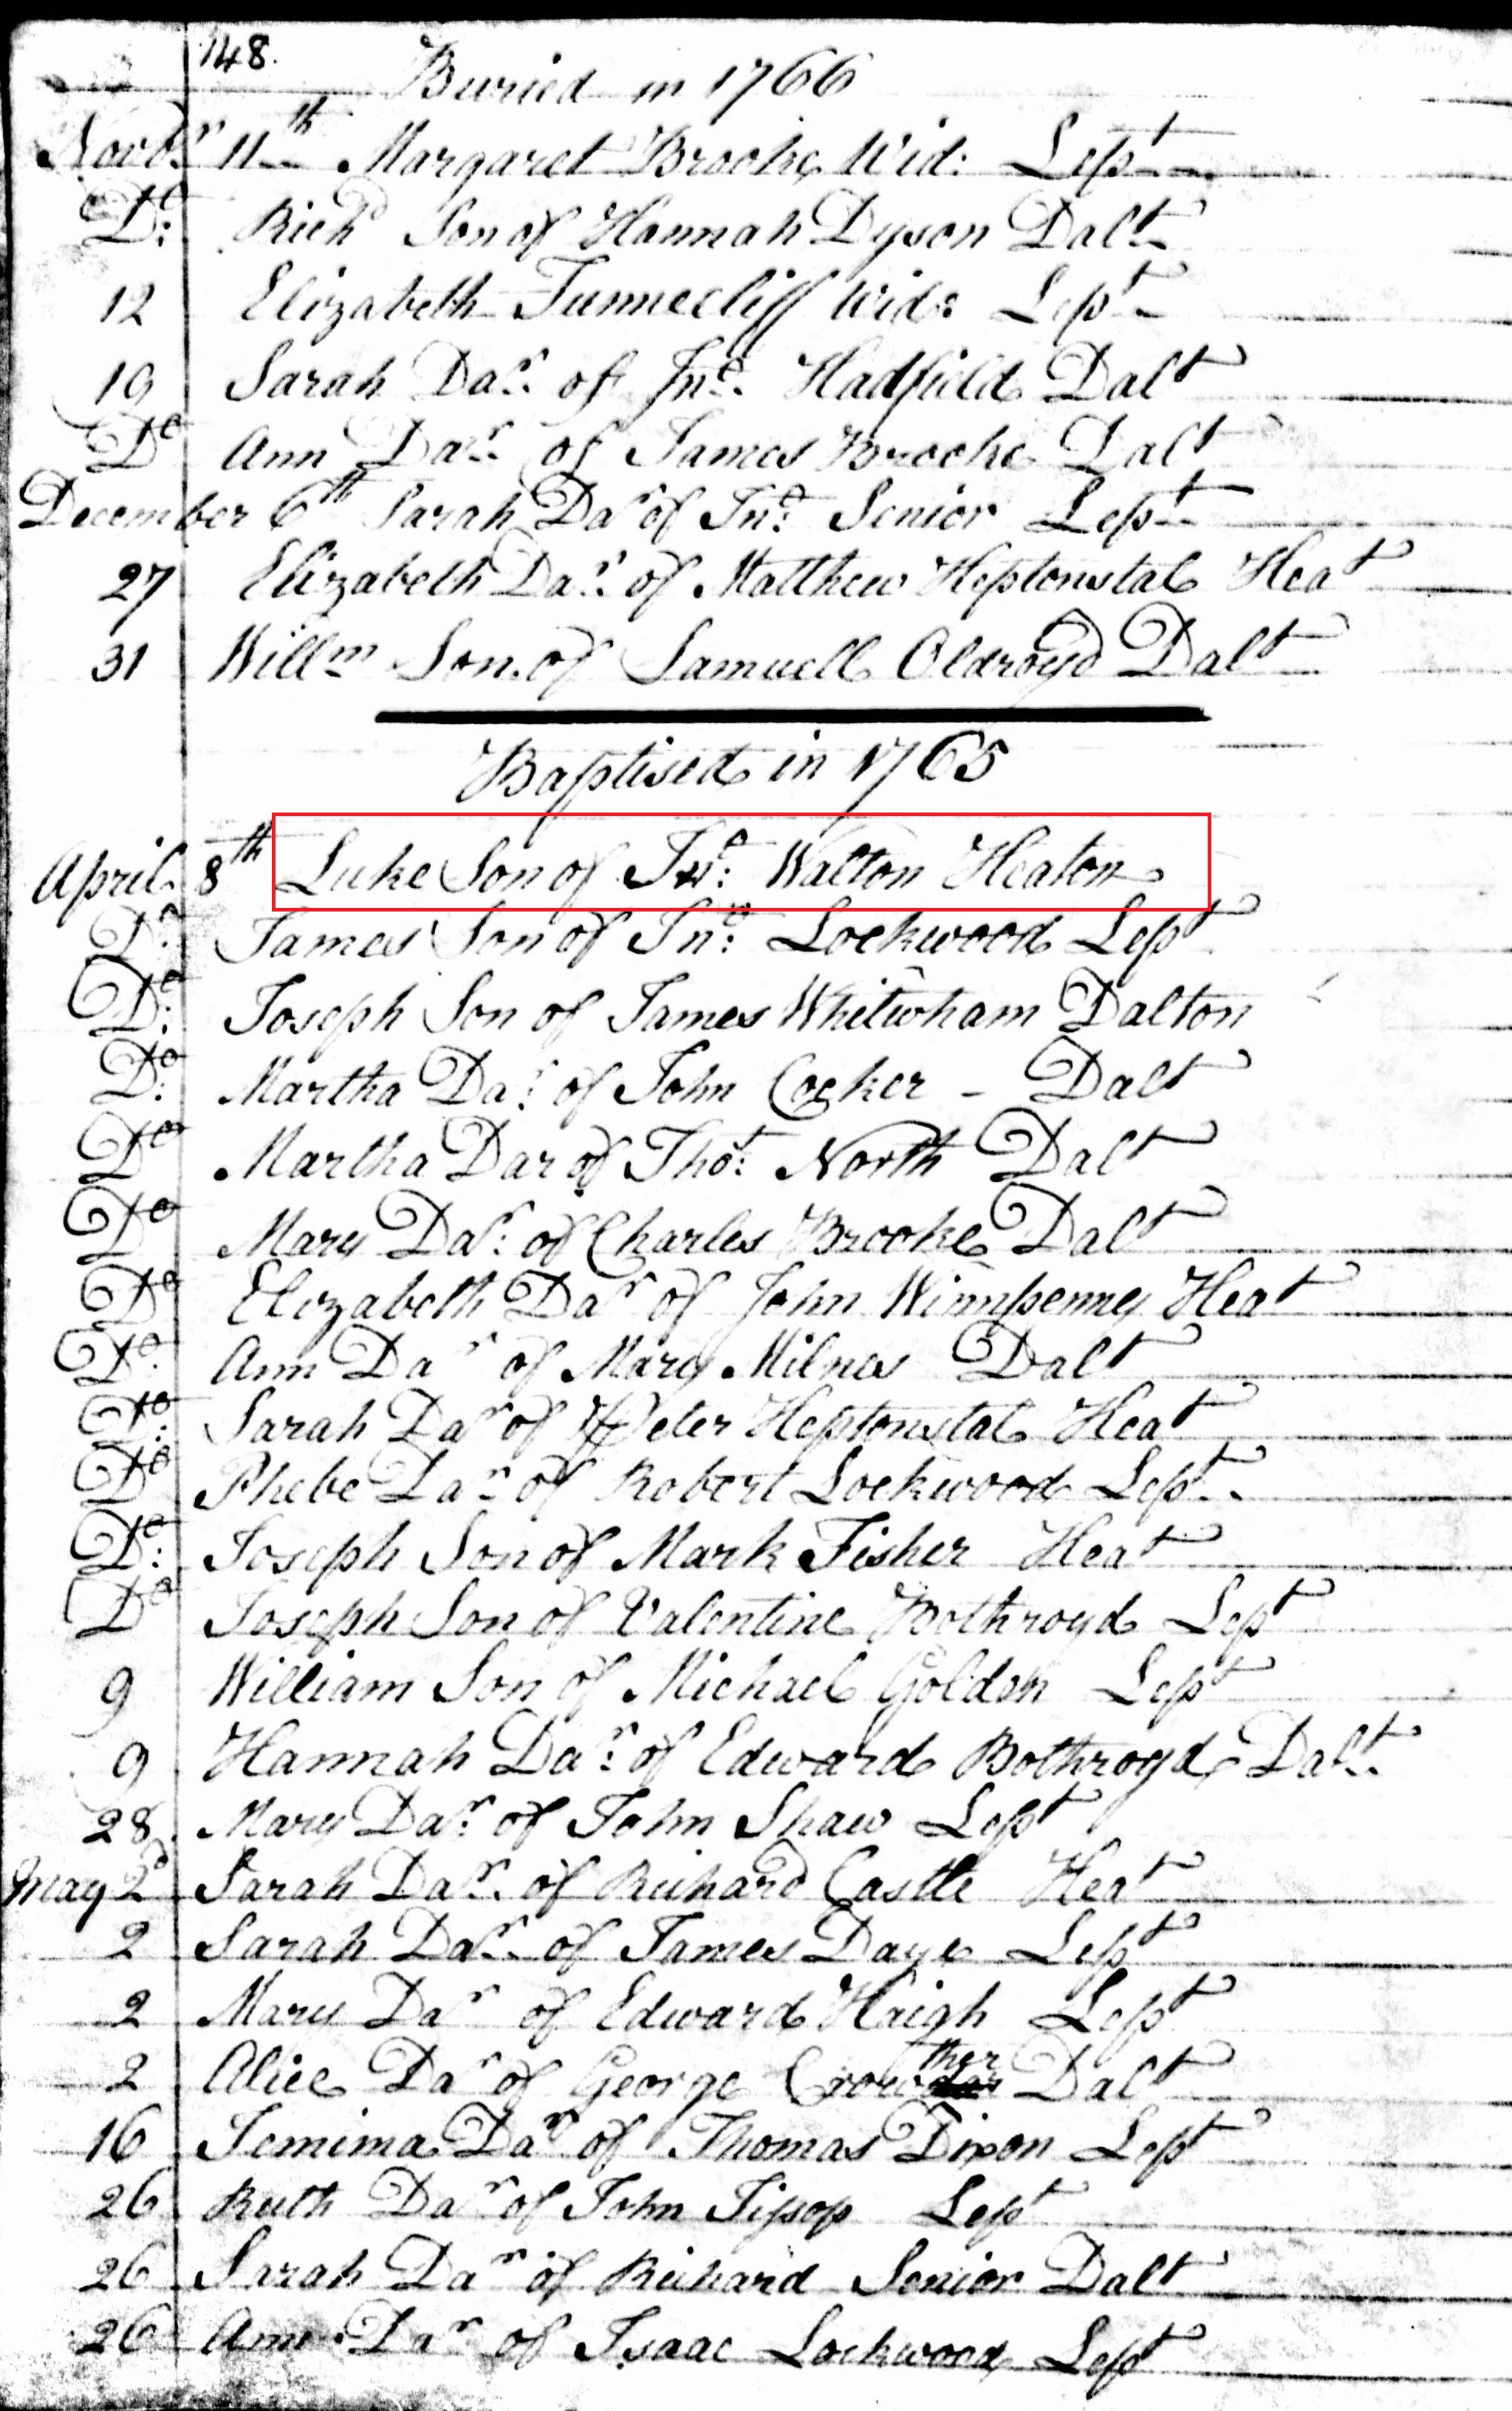 148.
Buried in 1766
Novbr 11th Margaret Brooke Wid: Lept
Do: Richd Son of Hannah Dyson Dalt
12 Elizabeth Tunnecliff Wid: Lept
19 Sarah Dar. of Jno. Hadfield Dalt
Do Ann Dar. of James Brooke Dalt
December 6th Sarah Dar of Jno: Senior Lept
27 Elizabeth Dar. of Matthew Heptonstal Heat
31 Willm Son of Samuell Oldroyd Dalt
Baptised in 1765
April 8th Luke Son of Jno: Walton Heaton
Do: James Son of Jno: Lockwood Lept
Do: Joseph Son of James Whitwham Dalton
Do: Martha Dar: of John Cocker - Dalt
Do Martha Dar of Thos: North Dalt
Do Mary Dar: of Charles Brooke Dalt
Do Elizabeth Dar of John Winnpenny Heat
Do: Ann Dar of Mary Milnes Dalt
Do: Sarah Dar of Peter Heptonstal Heat
Do Phebe Dar of Robert Lockwood Lept
Do: Joseph Son of Mark Fisher Heat
Do Joseph Son of Valentine Bothroyd Lept
9 William Son of Michael Golden Lept
9 Hannah Dar: of Edward Bothroyd Dalt
28 Mary Dar: of John Shaw Lept
May 2d Sarah Dar. of Richard Castle Heat
2 Sarah Dar. of James Daye Lept
2 Mary Dar of Edward Haigh Lept
2 Alice Dar of George Crowther Dalt
16 Jemima Dar of Thomas Dixon Lept
26 Ruth Dar of John Jepson Lept
26 Sarah Dar of Richard Senior Dalt
26 Ann Dar of Isaac Lockwood Lept